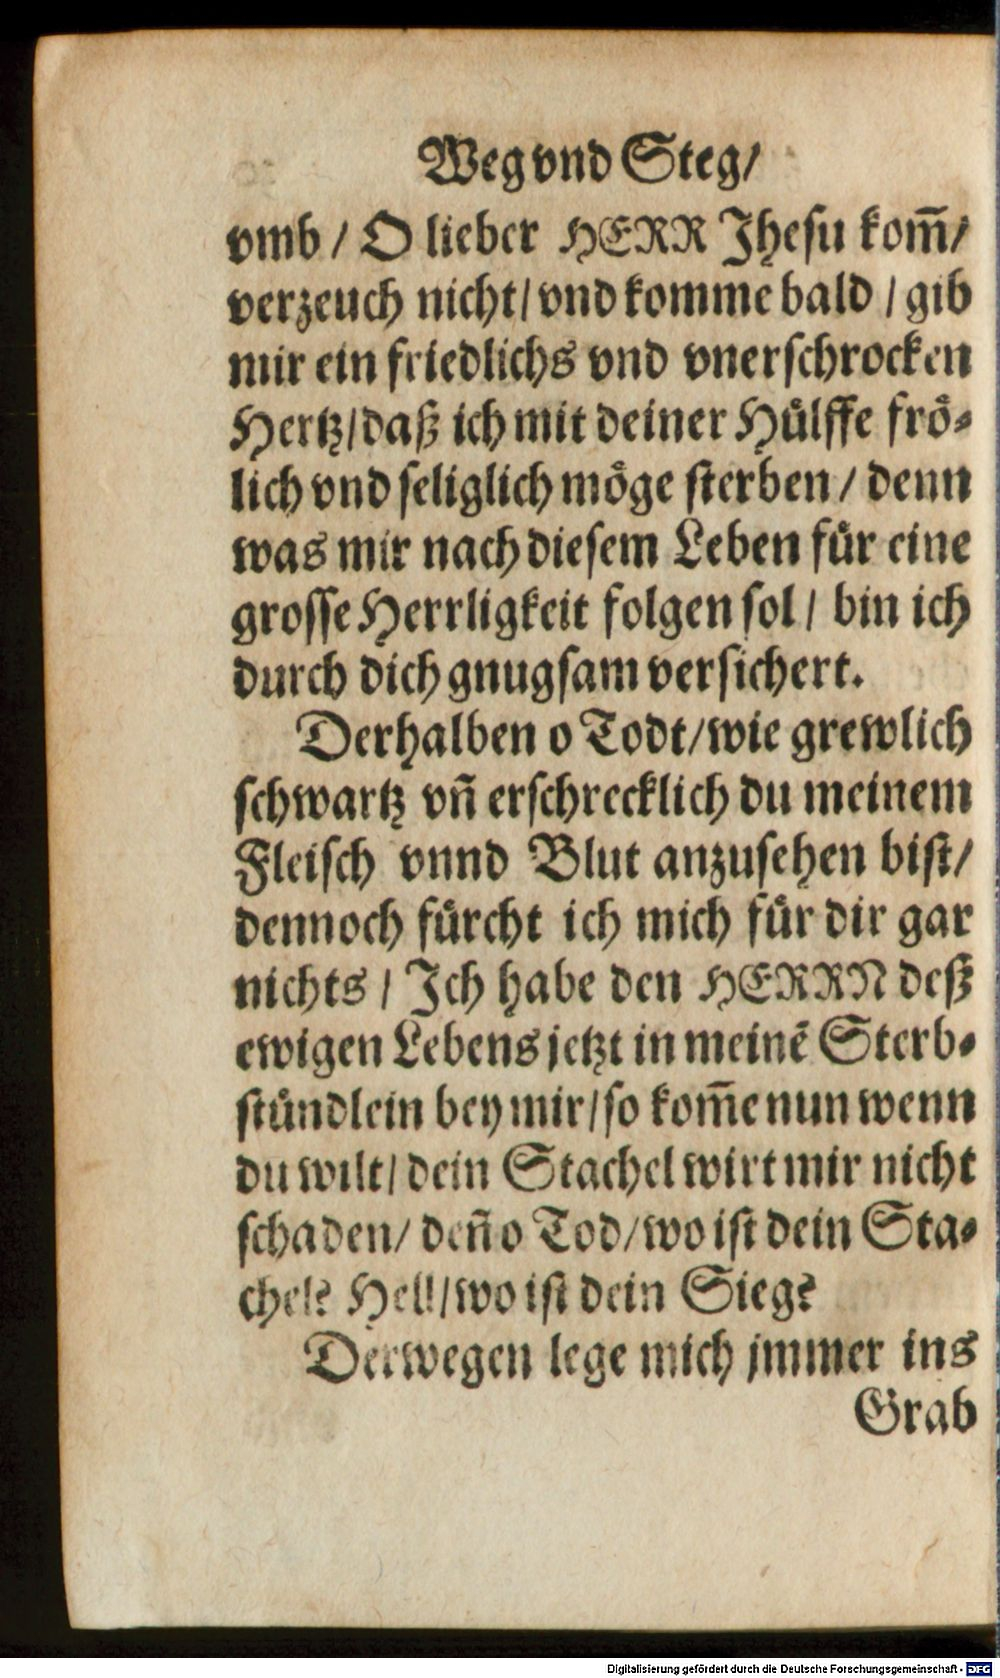 Weg vnd Steg/
vmb / O lieber HERR Jhesu kom̃/
verzeuch nicht/ vnd komme bald / gib
mir ein friedlichs vnd vnerschrocken
Hertz/ daß ich mit deiner Huͤlffe froͤ-
lich vnd seliglich moͤge sterben / denn
was mir nach diesem Leben fuͤr eine
grosse Herrligkeit folgen sol / bin ich
durch dich gnugsam versichert.
Derhalben o Todt/ wie grewlich
schwartz vñ erschrecklich du meinem
Fleisch vnnd Blut anzusehen bist/
dennoch fuͤrcht ich mich fuͤr dir gar
nichts / Ich habe den HERRN deß
ewigen Lebens jetzt in meinẽ Sterb-
stuͤndlein bey mir/ so kom̃e nun wenn
du wilt/ dein Stachel wirt mir nicht
schaden/ deñ o Tod/ wo ist dein Sta-
chel? Hell/ wo ist dein Sieg?
Derwegen lege mich jmmer ins
Grab
Digitalisierung gefördert durch die Deutsche Forschungsgemeinschaft - DFG